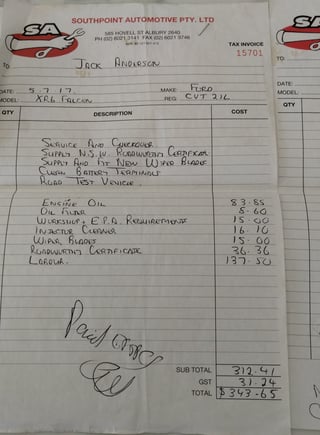 SA
SOUTHPOINT AUTOMOTIVE PTY. LTD
585 HOVELL ST ALBURY 2640
PH (02) 6021 3141 FAX (02) 6021 9746
TAX INVOICE
15701
TO JACK ANDERSON
DATE: 5.7.17. MAKE: FORD
MODEL: XR6 FALCON REG: CVT 21L
QTY DESCRIPTION COST
SERVICE AND CHECKOVER
SUPPLY N.S.W. ROADWORTHY CERTIFICATE
SUPPLY AND FIT NEW WIPER BLADES
CLEAN BATTERY TERMINALS
ROAD TEST VEHICLE.
ENGINE OIL 83.85
OIL FILTER 5.60
WORKSHOP + E.P.A. REQUIREMENTS 15.00
INJECTOR CLEANER 16.10
WIPER BLADES 15.00
ROADWORTHY CERTIFICATE 36.36
LABOUR. 137.50
Paid
SUB TOTAL 312.41
GST 31.24
TOTAL $343.65
SA
TO
DATE:
MODEL:
QTY